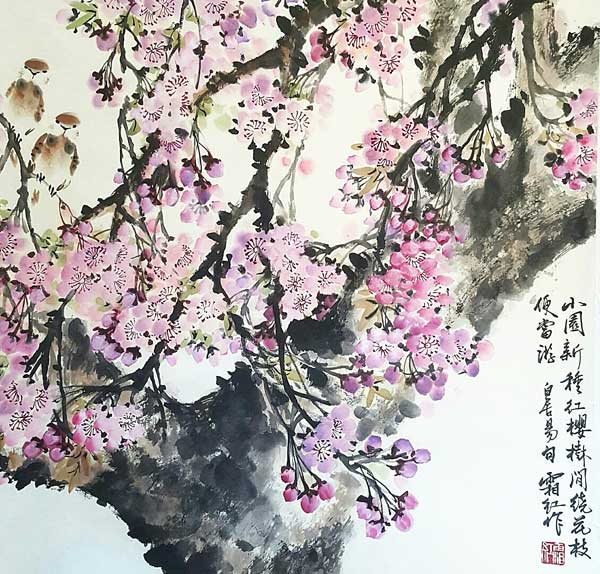 小園新種红櫻樹闲繞花枝
便當遊 白居易句 霜红作